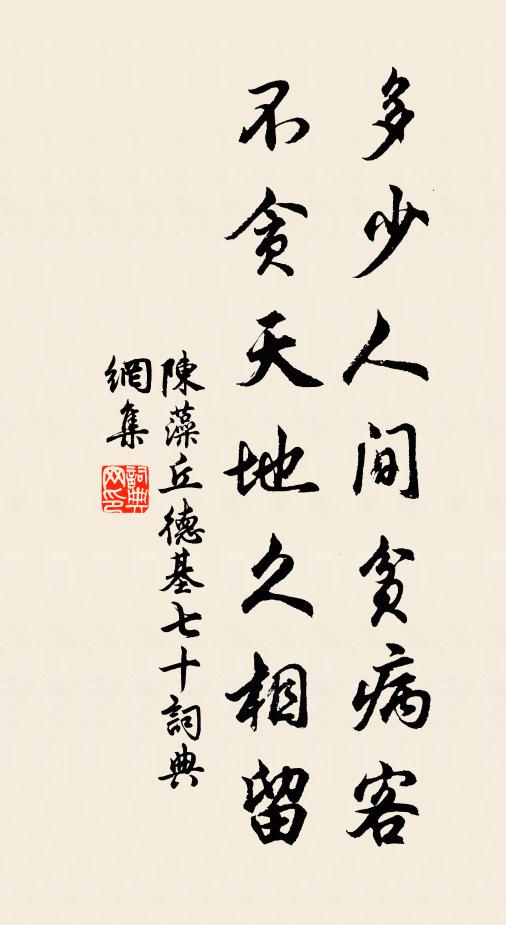 多少人间貧病客
不貪天地久相留
陳藻丘德基七十詞典
網集
詞典网印